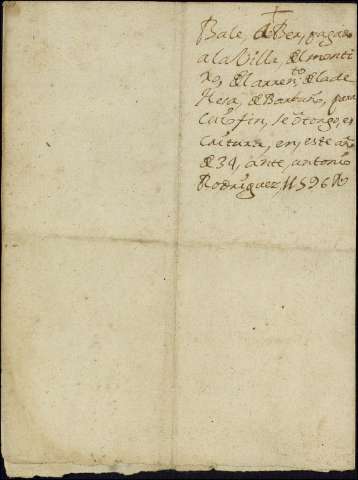 Bale, de Ber, pagado
a la Villa, del monti
xo, del arren.to de la de
Hesa, de Barbaño, para
Cuio fin, se otorgo, es
Critura, en, este año
de 34, ante, antonio
Rodriguez, 11596 Rs